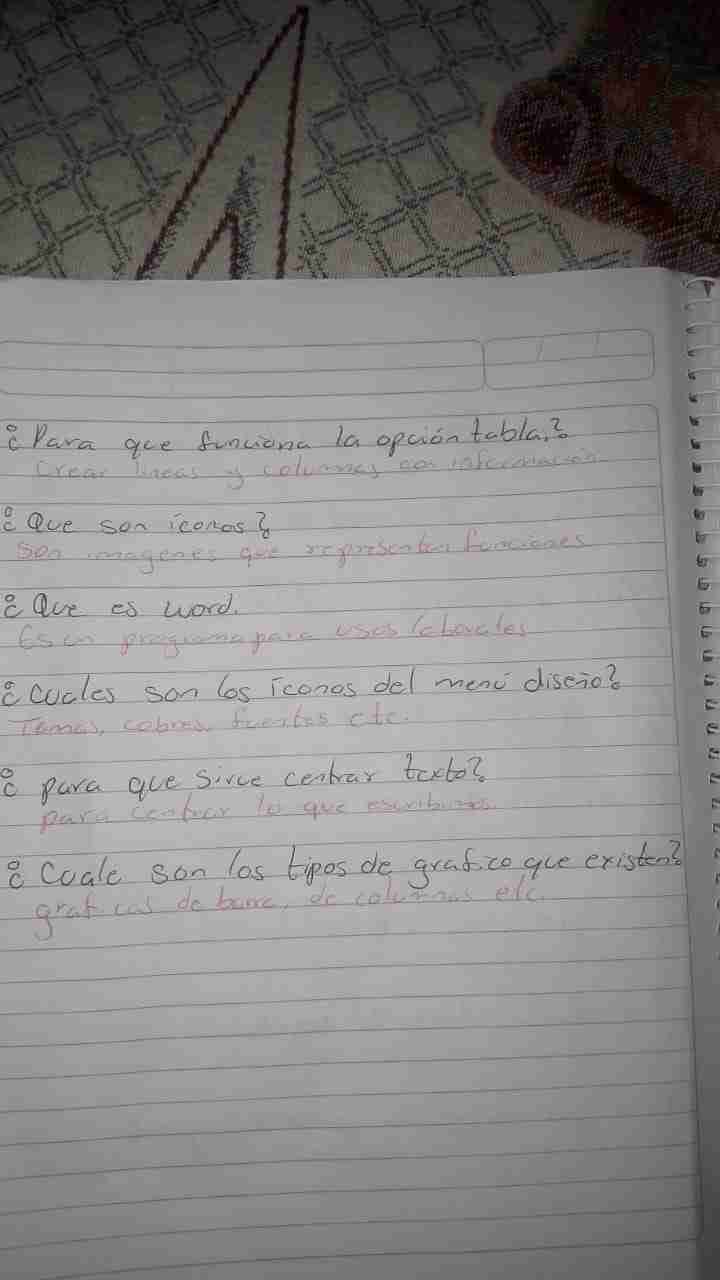 ¿Para que funciona la opción tabla?
Crear lineas y columnas con información
¿Que son iconos?
Son imagenes que representan funciones
¿Que es word.
Es un programa para usos laborales
¿Cuales son los iconos del menú diseño?
Temas, colores, fuentes etc.
¿para que sirve centrar texto?
para centrar lo que escribimos
¿Cuale son los tipos de grafico que existen?
graficas de barra, de columnas etc.